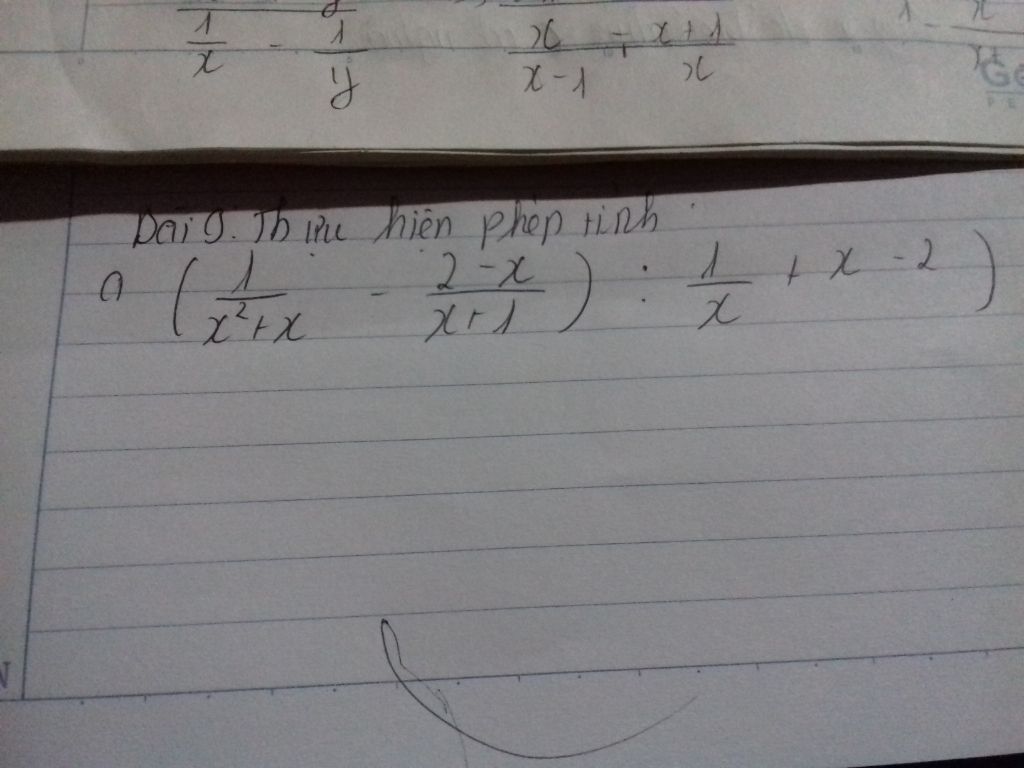 1/x - 1/y x/(x-1) - (x+1)/x 1 - x
Ge
Bài 9. Thực hiện phép tính
a (1/(x²+x) - (2-x)/(x+1)) : 1/x + x - 2)